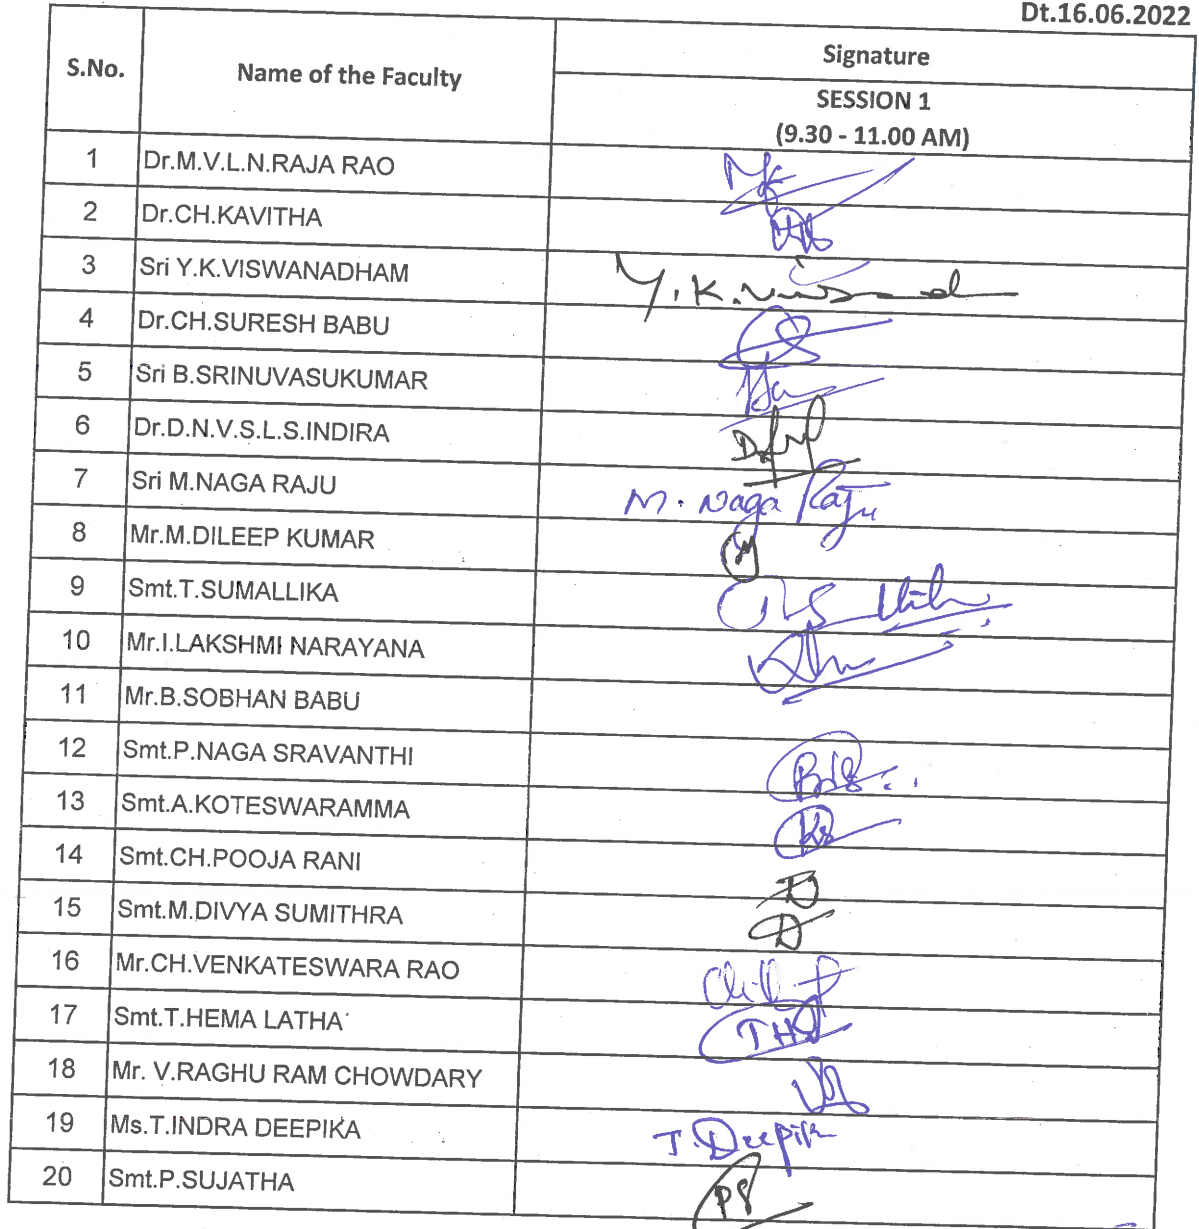 Dt.16.06.2022
S.No. Name of the Faculty Signature
SESSION 1
(9.30 - 11.00 AM)
1 Dr.M.V.L.N.RAJA RAO
2 Dr.CH.KAVITHA
3 Sri Y.K.VISWANADHAM Y.K.
4 Dr.CH.SURESH BABU
5 Sri B.SRINUVASUKUMAR
6 Dr.D.N.V.S.L.S.INDIRA
7 Sri M.NAGA RAJU M. Naga Raju
8 Mr.M.DILEEP KUMAR
9 Smt.T.SUMALLIKA
10 Mr.I.LAKSHMI NARAYANA
11 Mr.B.SOBHAN BABU
12 Smt.P.NAGA SRAVANTHI
13 Smt.A.KOTESWARAMMA
14 Smt.CH.POOJA RANI
15 Smt.M.DIVYA SUMITHRA D
16 Mr.CH.VENKATESWARA RAO
17 Smt.T.HEMA LATHA
18 Mr. V.RAGHU RAM CHOWDARY
19 Ms.T.INDRA DEEPIKA T. Deepika
20 Smt.P.SUJATHA PS